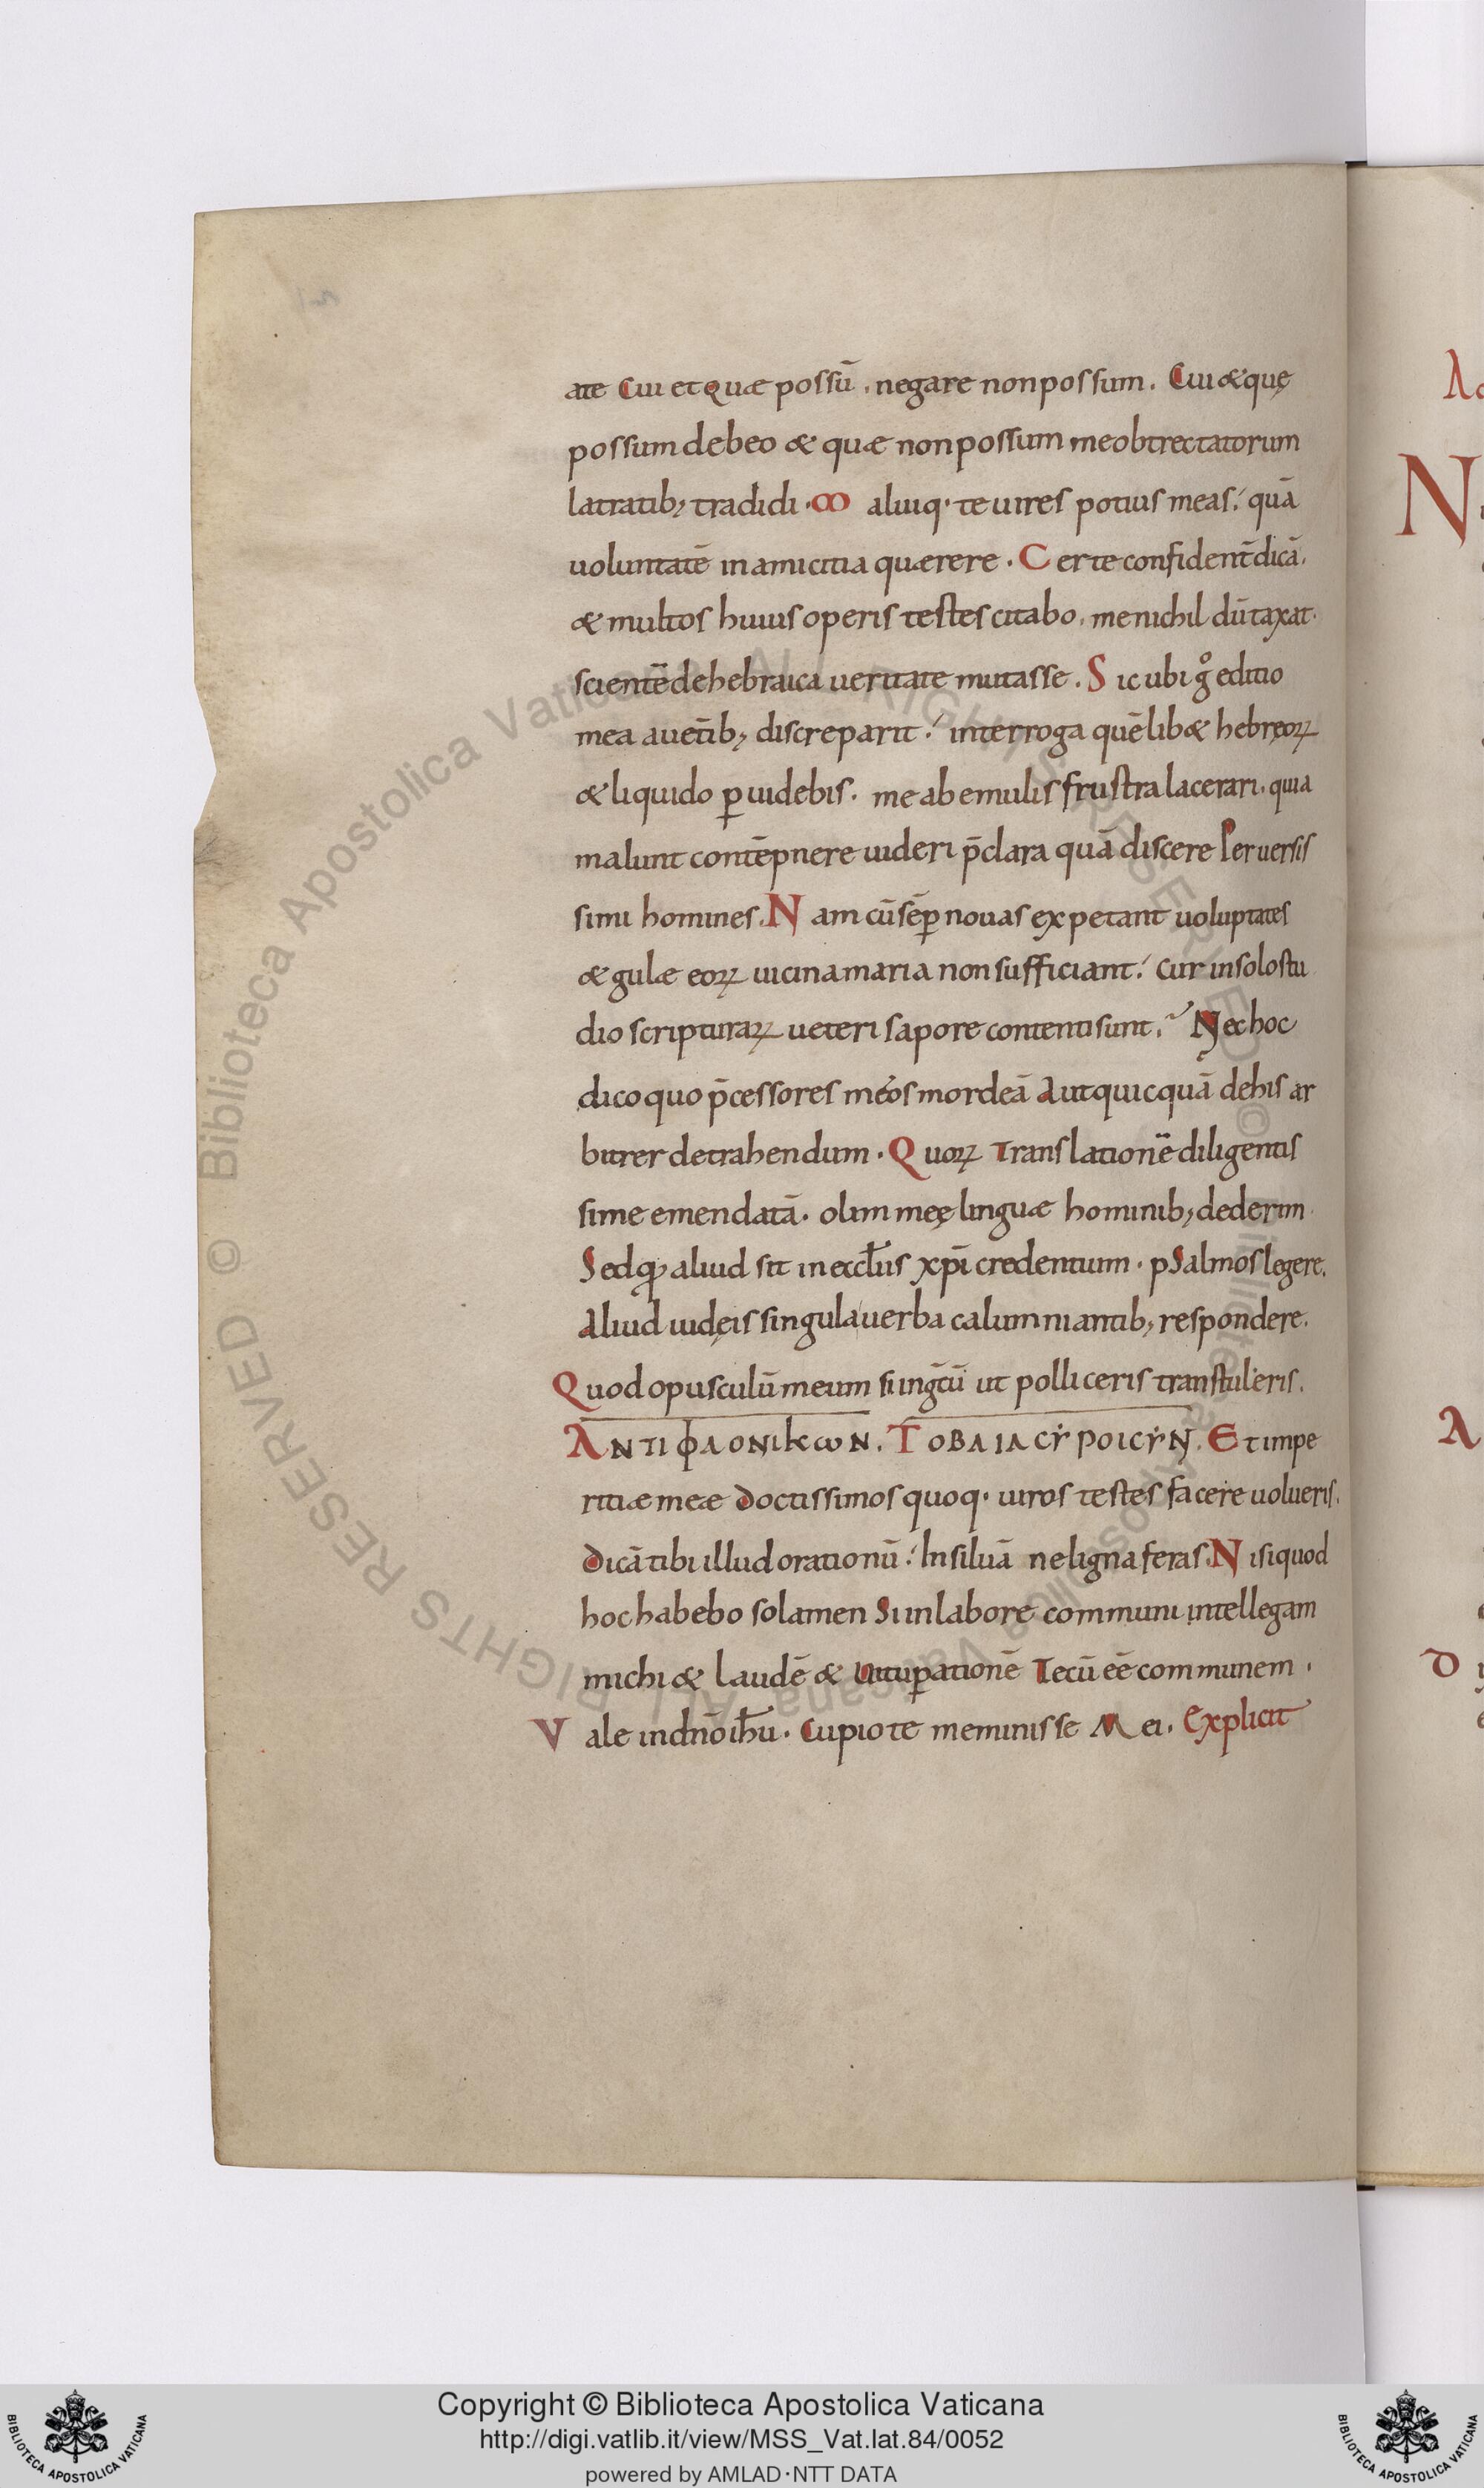 ate Cui et quae possū. negare non possum. Cui & quę
possum debeo & quae non possum me obtrectatorum
latratib; tradidi. Maluiq. te uires potius meas: quā
uoluntatē in amicitia quaerere. Certe confident̄ dicā.
& multos huius operis testes citabo. me nichil dūtaxat.
scientē de hebraica ueritate mutasse. Sicubi g̊ editio
mea a uet̄ib; discreparit: interroga quēlib& hebręoꝝ
& liquido ꝑuidebis. me ab emulis frustra lacerari. quia
malunt contēpnere uideri p̄clara quā discere Peruersis
simi homines. Nam cū sēꝑ nouas expetant uoluptates
& gulae eoꝝ uicina maria non sufficiant: cur in solo stu
dio scripturaꝝ ueteri sapore contenti sunt. Nec hoc
dico quo p̄cessores meos mordeā Aut quicquā de his ar
bitrer detrahendum. Quoꝝ Translationē diligentis
sime emendatā. olim meę linguae hominib; dederim.
Sed qđ aliud sit in eccłiis xp̄i credentium. pSalmos legere.
Aliud iudęis singula uerba calumniantib; respondere.
Quod opusculū meum si in gr̄cū ut polliceris transtuleris.
ΑΝΤΙΦΛΟΝΙΚωΝ. ΤΟΒΑΙΑCΫΡΟΙCΫΝ. Et impe
ritiae meae doctissimos quoq. uiros testes facere uolueris.
dicā tibi illud orationū: In siluā ne ligna feras. Nisi quod
hoc habebo solamen Si in labore communi intellegam
michi & laudē & uituꝑationē Tecū eē communem.
Vale in dn̄o iħu. Cupio te meminisse Mei. Explicit
Copyright © Biblioteca Apostolica Vaticana
http://digi.vatlib.it/view/MSS_Vat.lat.84/0052
powered by AMLAD·NTT DATA